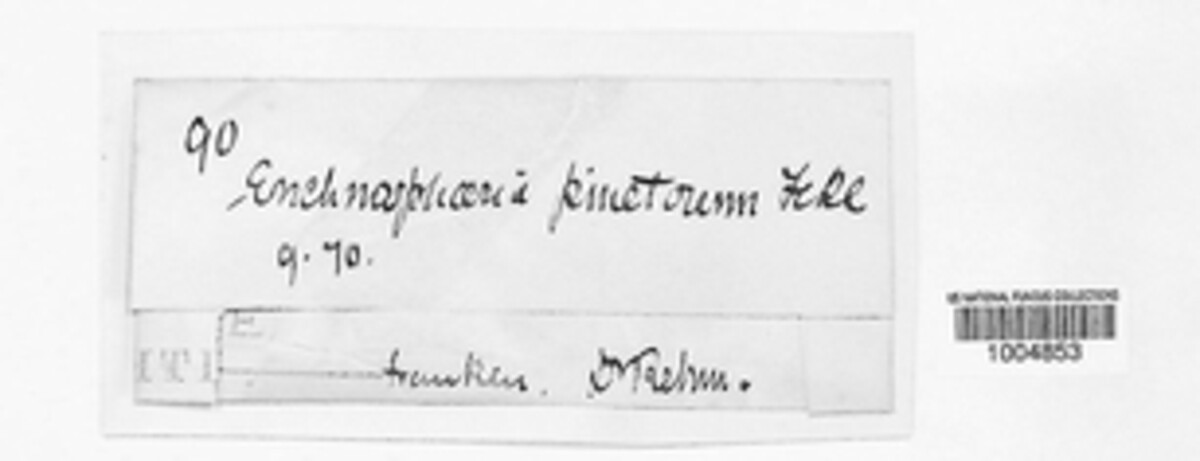 90
Enchnosphaeria pinetorum Fckl
9. 70.
franken. Dr Rehm.
US NATIONAL FUNGUS COLLECTIONS
1004853